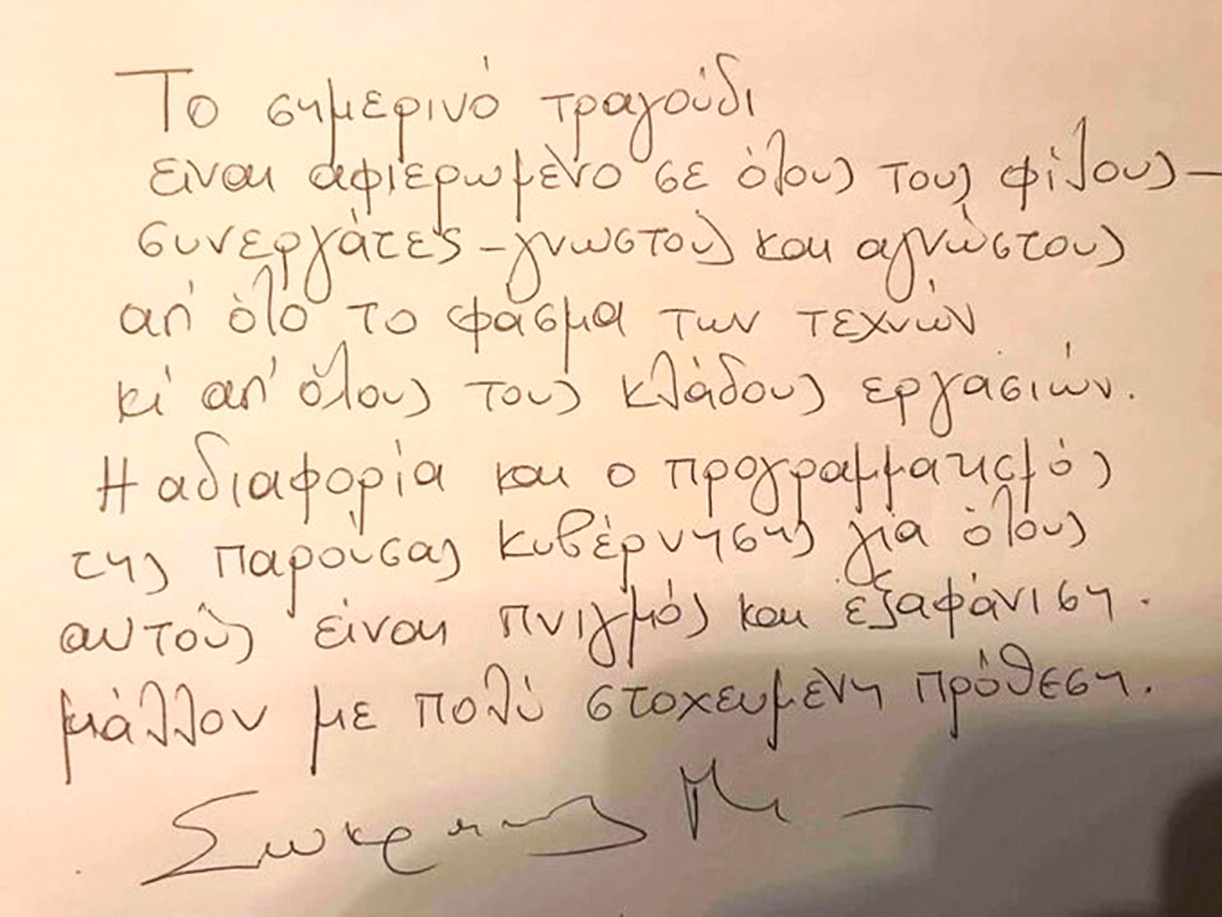 Το σημερινό τραγούδι
είναι αφιερωμένο σε όλους τους φίλους–
συνεργάτες–γνωστούς και αγνώστους
απ' όλο το φάσμα των τεχνών
κι' απ' όλους τους κλάδους εργασιών.
Η αδιαφορία και ο προγραμματισμός
της παρούσας κυβέρνησης για όλους
αυτούς είναι πνιγμός και εξαφάνιση.
μάλλον με πολύ στοχευμένη πρόθεση.
Σωκράτης